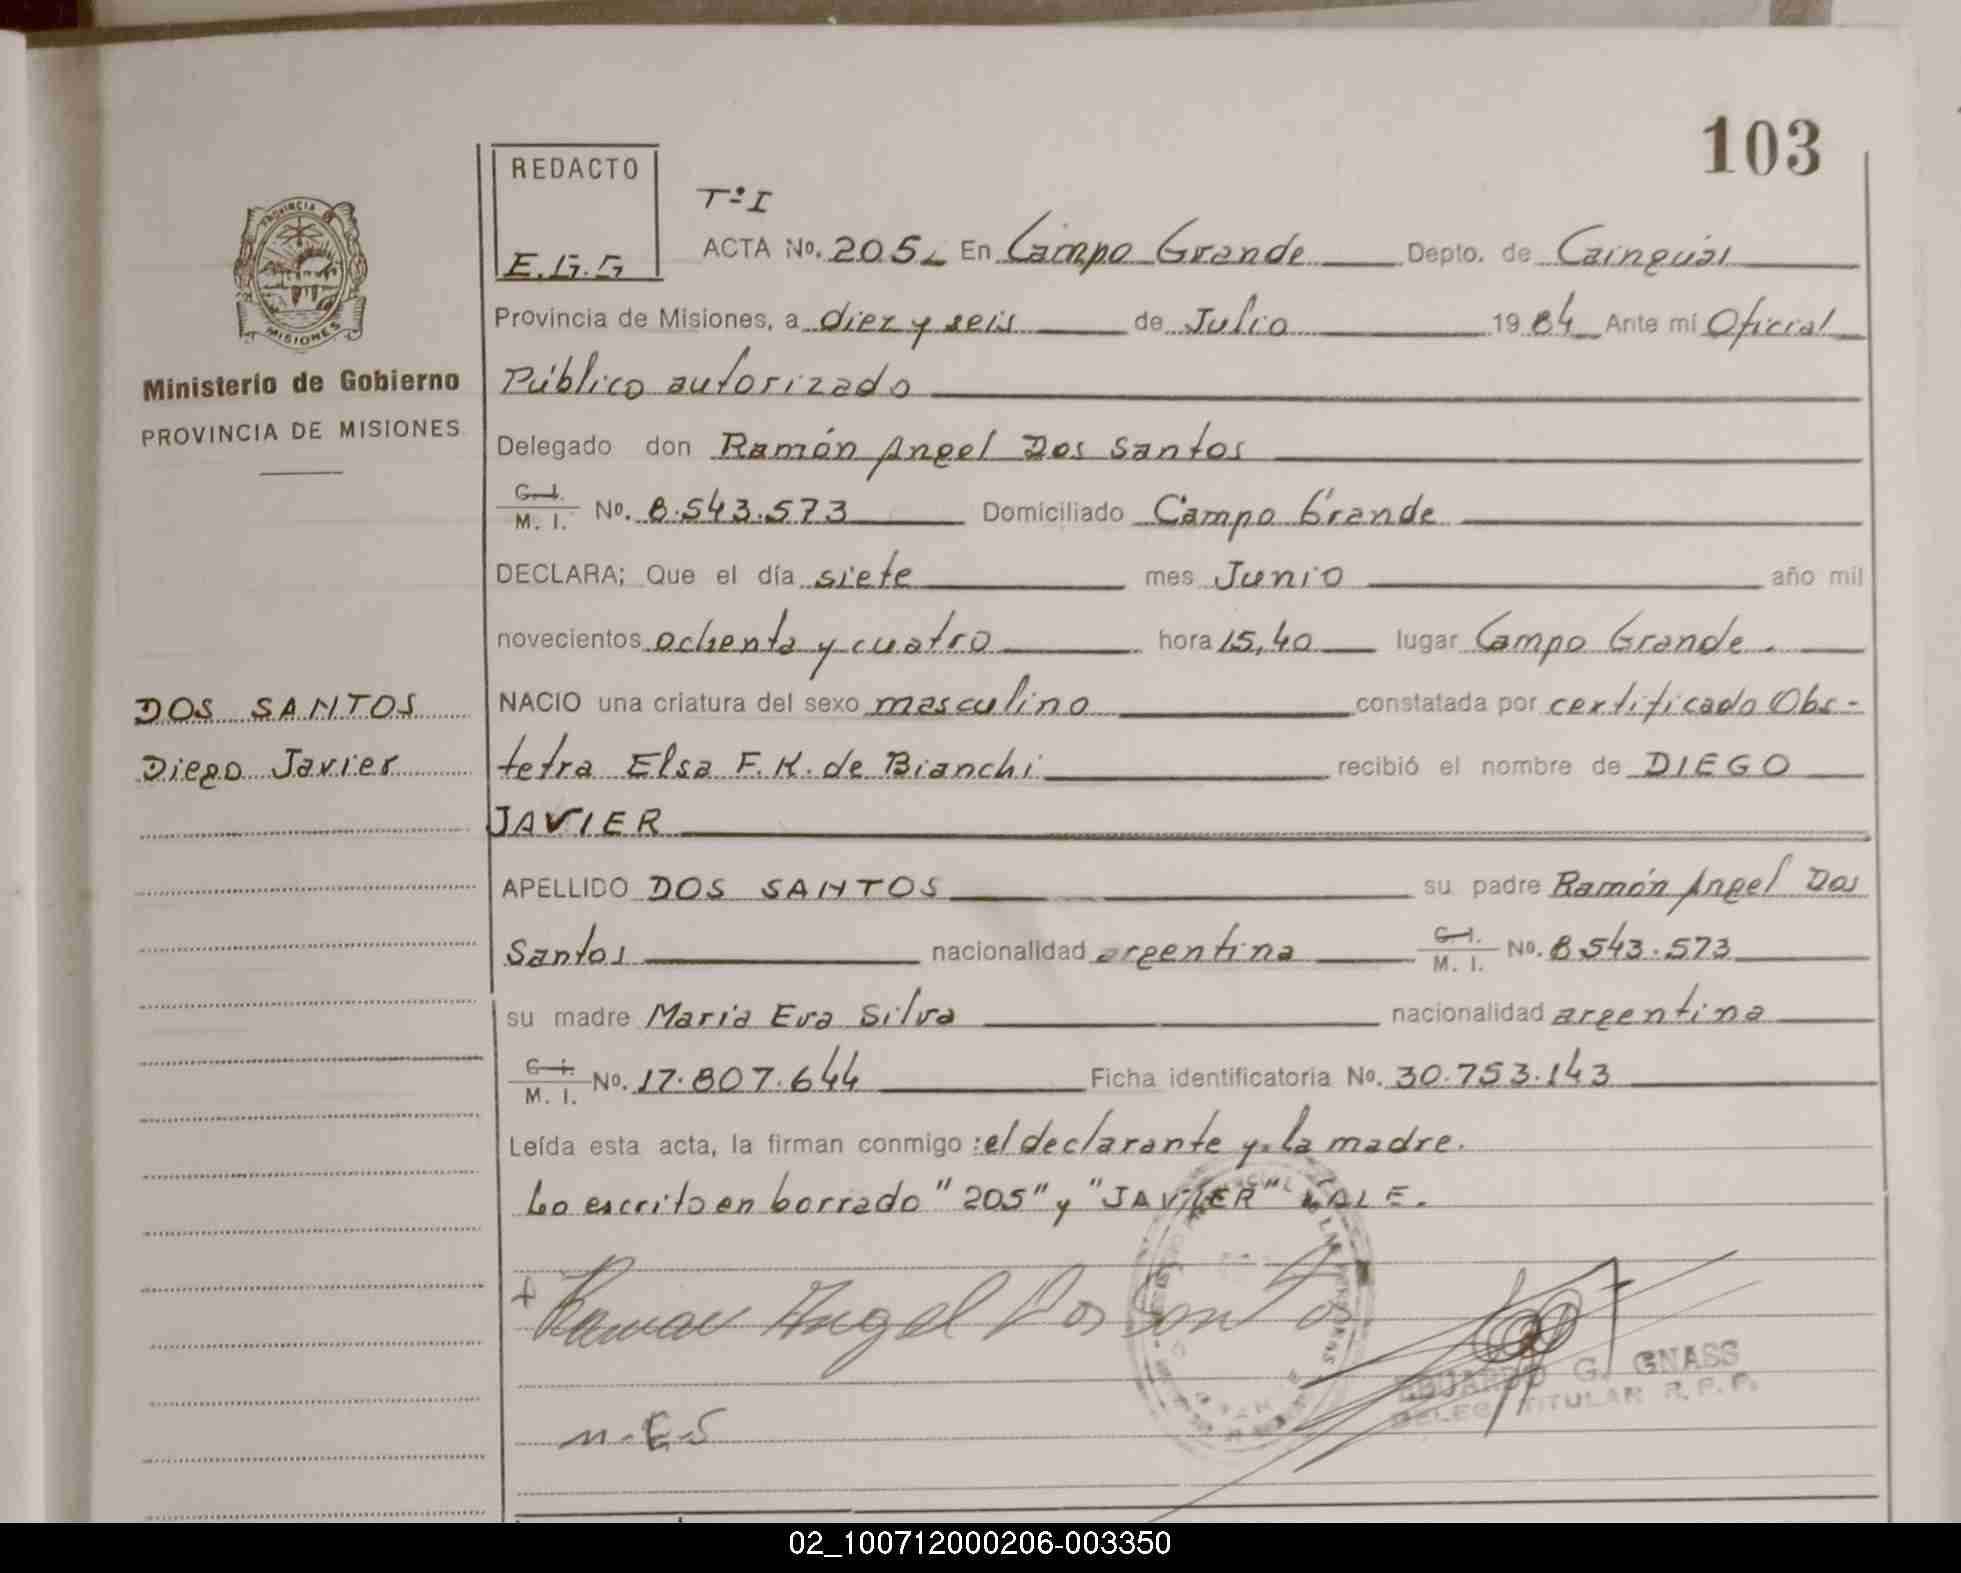 103
PROVINCIA
MISIONES
Ministerio de Gobierno
PROVINCIA DE MISIONES
REDACTO
E.G.G
Tº I
ACTA No. 205. En Campo Grande Depto. de Cainguás
Provincia de Misiones, a diez y seis de Julio 1984 Ante mí Oficial
Público autorizado
Delegado don Ramón Angel Dos Santos
C. I.
M. I. No. 8.543.573 Domiciliado Campo Grande
DECLARA; Que el día siete mes Junio año mil
novecientos ochenta y cuatro hora 15,40 lugar Campo Grande.
DOS SANTOS
Diego Javier
NACIO una criatura del sexo masculino constatada por certificado Obs-
tetra Elsa F. K. de Bianchi recibió el nombre de DIEGO
JAVIER
APELLIDO DOS SANTOS su padre Ramón Angel Dos
Santos nacionalidad argentina C. I. M. I. No. 8.543.573
su madre Maria Eva Silva nacionalidad argentina
C. I.
M. I. No. 17.807.644 Ficha identificatoria No. 30.753.143
Leída esta acta, la firman conmigo: el declarante y la madre.
Lo escrito en borrado "205" y "JAVIER" VALE.
Ramon Angel Dos Santos
M.E.S
EDUARDO G. GNASS
DELEG. TITULAR R. P. P.
02_100712000206-003350